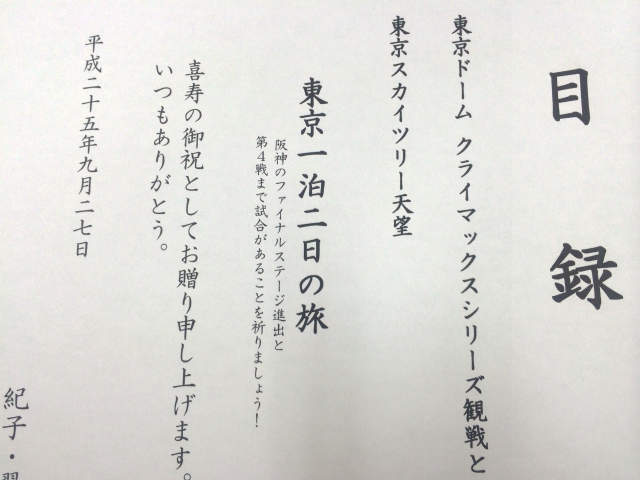 目録
東京ドーム クライマックスシリーズ観戦と
東京スカイツリー天望
東京一泊二日の旅
阪神のファイナルステージ進出と
第4戦まで試合があることを祈りましょう！
喜寿の御祝としてお贈り申し上げます。
いつもありがとう。
平成二十五年九月二七日
紀子・